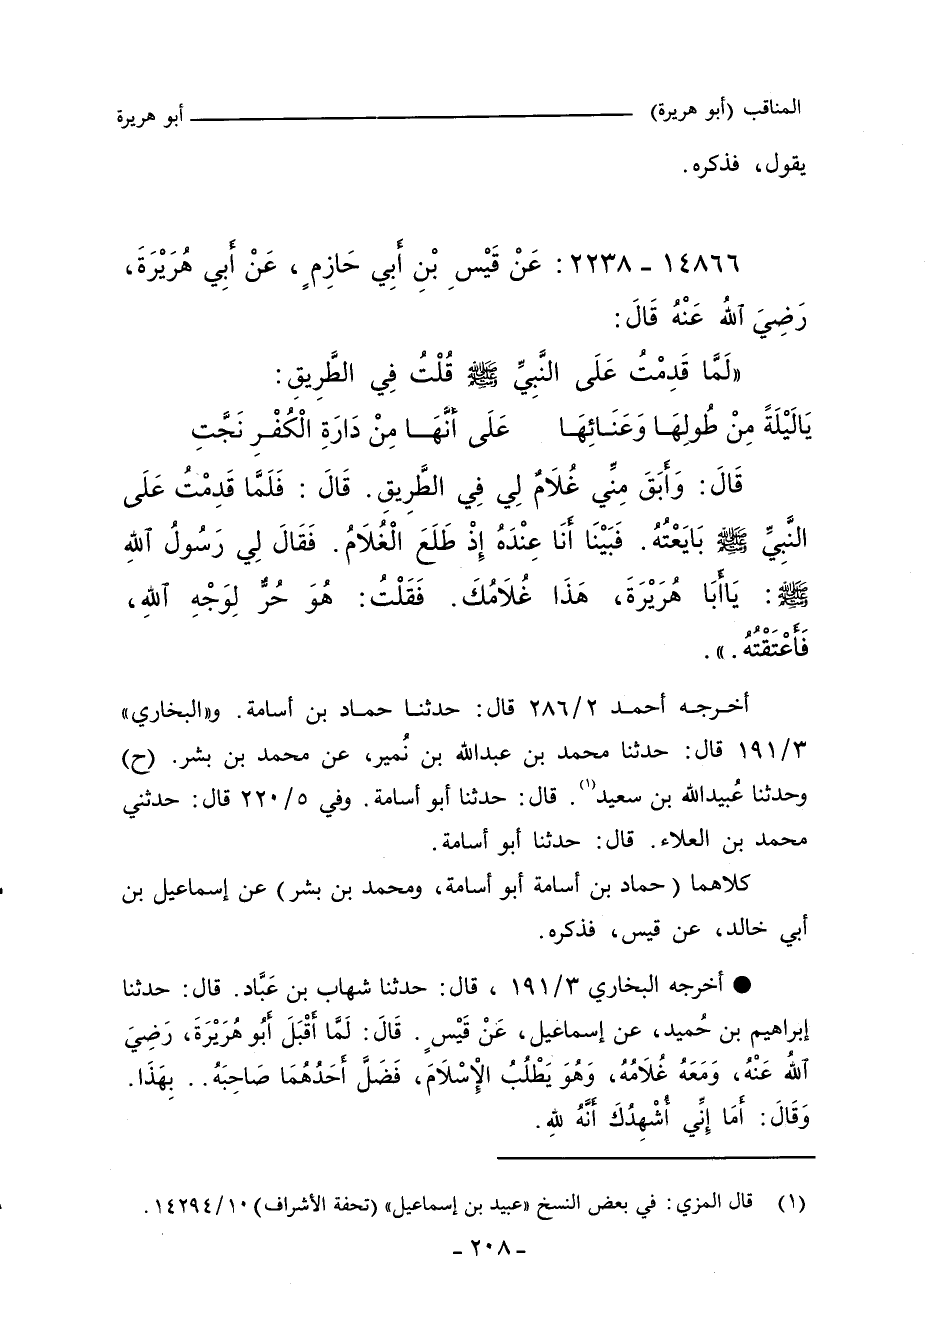 المناقب (أبو هريرة) ـــــــــــــــــــــــــــــــــــــــــ أبو هريرة
يقول، فذكره.
١٤٨٦٦ - ٢٢٣٨: عَنْ قَيْسِ بْنِ أَبِي حَازِمٍ، عَنْ أَبِي هُرَيْرَةَ،
رَضِيَ ٱللهُ عَنْهُ قَالَ:
«لَمَّا قَدِمْتُ عَلَى النَّبِيِّ ﷺ قُلْتُ فِي الطَّرِيقِ:
يَالَيْلَةً مِنْ طُولِهَا وَعَنَائِهَا عَلَى أَنَّهَا مِنْ دَارَةِ الْكُفْرِ نَجَّتِ
قَالَ: وَأَبَقَ مِنِّي غُلَامٌ لِي فِي الطَّرِيقِ. قَالَ: فَلَمَّا قَدِمْتُ عَلَى
النَّبِيِّ ﷺ بَايَعْتُهُ. فَبَيْنَا أَنَا عِنْدَهُ إِذْ طَلَعَ الْغُلَامُ. فَقَالَ لِي رَسُولُ ٱللهِ
ﷺ: يَاأَبَا هُرَيْرَةَ، هَذَا غُلَامُكَ. فَقَلْتُ: هُوَ حُرٌّ لِوَجْهِ ٱللهِ،
فَأَعْتَقْتُهُ.».
أخرجه أحمد ٢٨٦/٢ قال: حدثنا حماد بن أسامة. و«البخاري»
١٩١/٣ قال: حدثنا محمد بن عبدالله بن نُمير، عن محمد بن بشر. (ح)
وحدثنا عُبيدالله بن سعيد(١). قال: حدثنا أبو أسامة. وفي ٢٢٠/٥ قال: حدثني
محمد بن العلاء. قال: حدثنا أبو أسامة.
كلاهما (حماد بن أسامة أبو أسامة، ومحمد بن بشر) عن إسماعيل بن
أبي خالد، عن قيس، فذكره.
● أخرجه البخاري ١٩١/٣ ، قال: حدثنا شهاب بن عَبَّاد. قال: حدثنا
إبراهيم بن حُميد، عن إسماعيل، عَنْ قَيْسٍ. قَالَ: لَمَّا أَقْبَلَ أَبُو هُرَيْرَةَ، رَضِيَ
ٱللهُ عَنْهُ، وَمَعَهُ غُلَامُهُ، وَهُوَ يَطْلُبُ الْإِسْلَامَ، فَضَلَّ أَحَدُهُمَا صَاحِبَهُ.. بِهَذَا.
وَقَالَ: أَمَا إِنِّي أُشْهِدُكَ أَنَّهُ لِلهِ.
(١) قال المزي: في بعض النسخ «عبيد بن إسماعيل» (تحفة الأشراف) ١٤٢٩٤/١٠.
- ٢٠٨ -